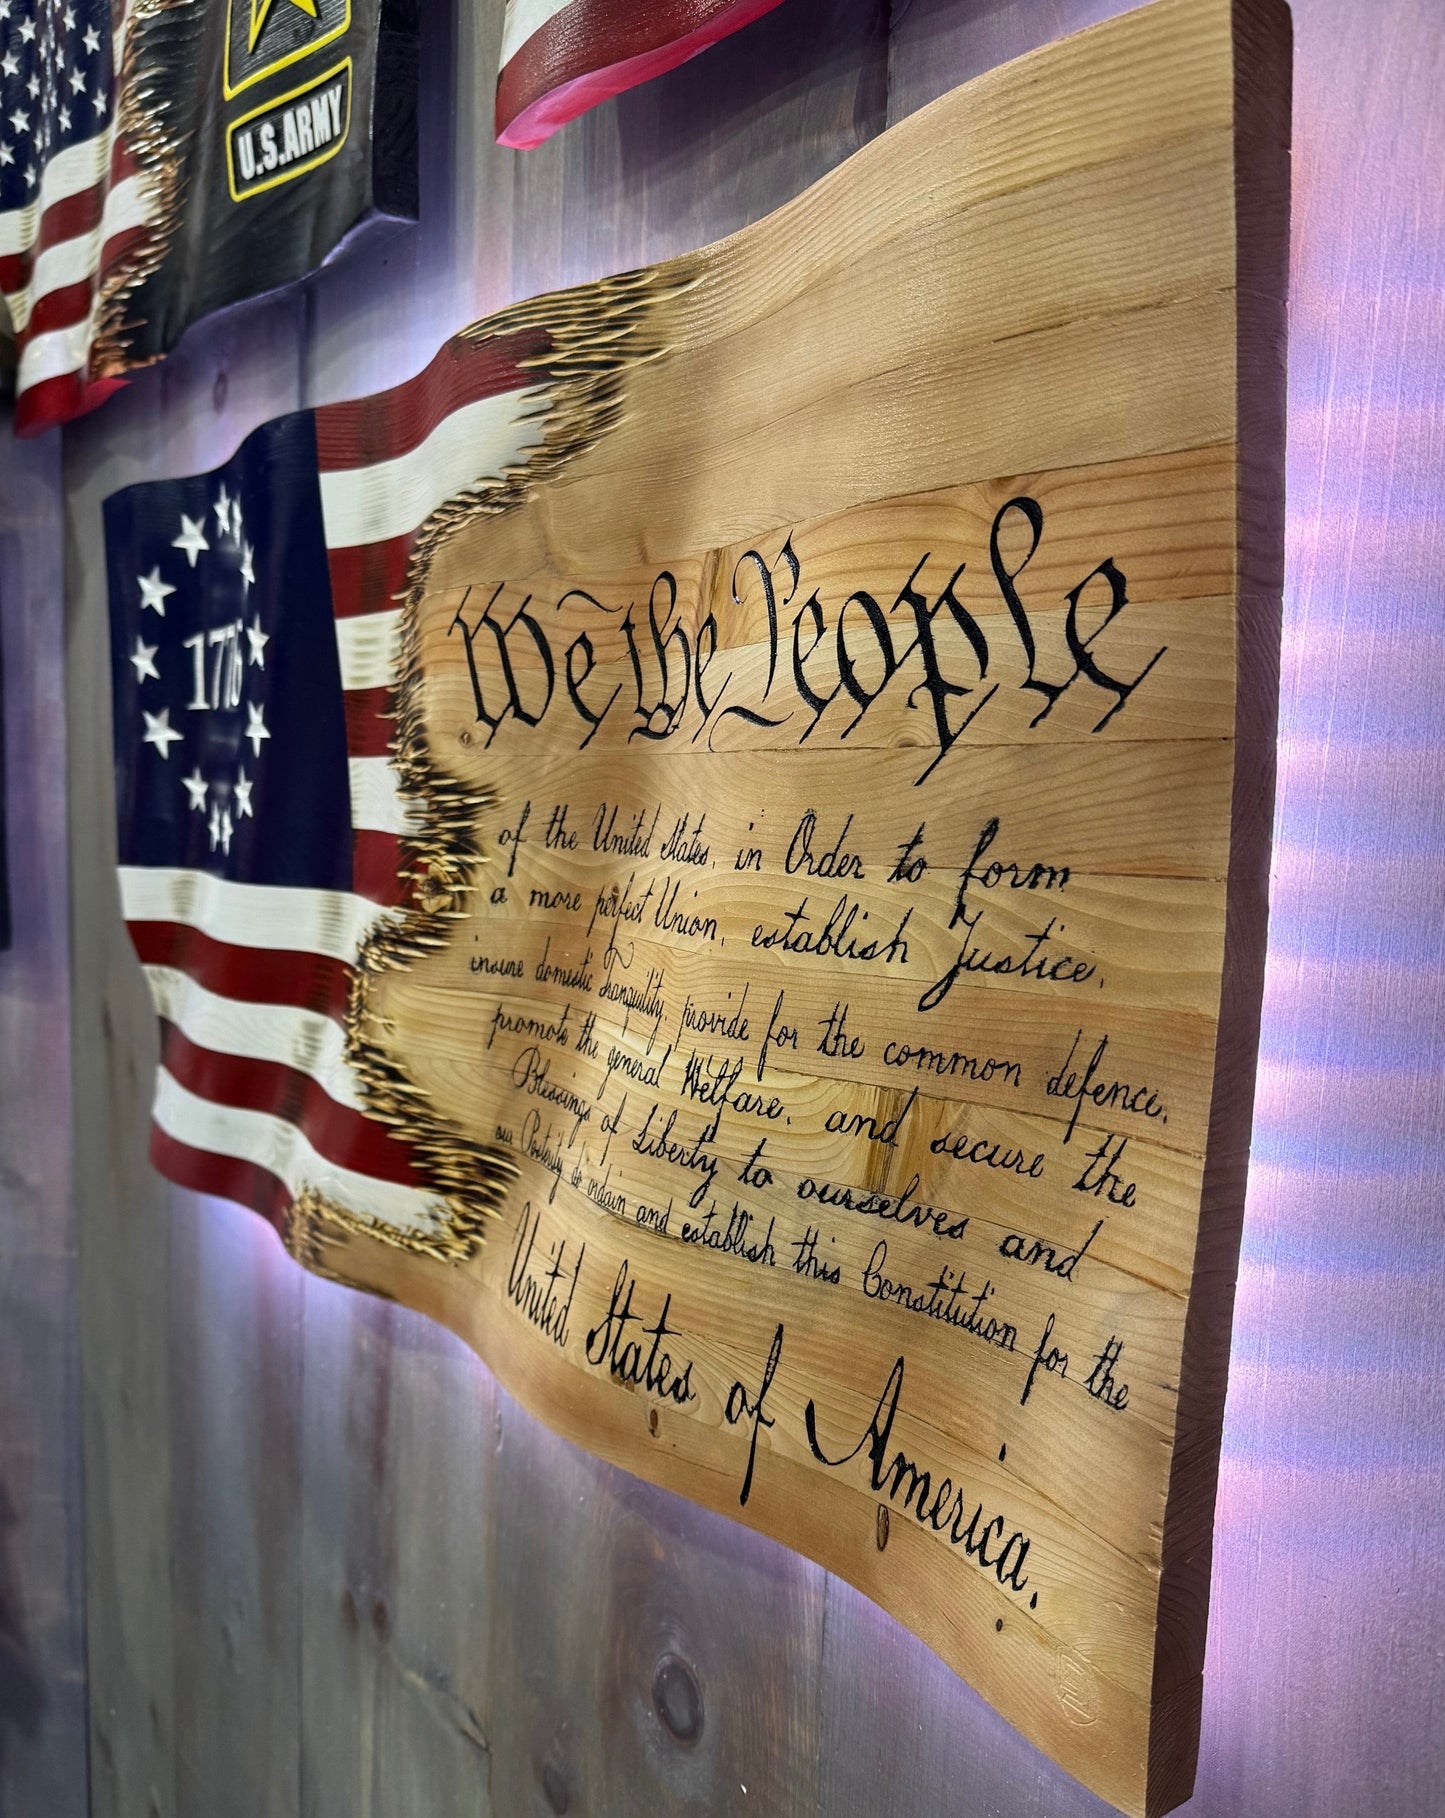 U.S.ARMY
1776
We the People
of the United States, in Order to form
a more perfect Union, establish Justice,
insure domestic Tranquility, provide for the common defence,
promote the general Welfare, and secure the
Blessings of Liberty to ourselves and
our Posterity do ordain and establish this Constitution for the
United States of America.